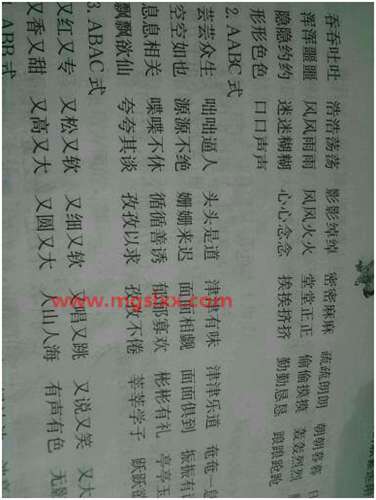 吞吞吐吐 浩浩荡荡 影影绰绰 密密麻麻 疏疏朗朗 朝朝暮暮
浑浑噩噩 风风雨雨 风风火火 堂堂正正 偷偷摸摸 轰轰烈烈
隐隐约约 迷迷糊糊 心心念念 挨挨挤挤 勤勤恳恳 踉踉跄跄
形形色色 口口声声
2. AABC 式
芸芸众生 咄咄逼人 头头是道 津津有味 津津乐道 奄奄一
空空如也 源源不绝 姗姗来迟 面面相觑 面面俱到 振振有
息息相关 喋喋不休 循循善诱 郁郁寡欢 彬彬有礼 亭亭玉
飘飘欲仙 夸夸其谈 孜孜以求 孜孜不倦 莘莘学子 跃跃欲
3. ABAC 式
又红又专 又松又软 又细又软 又唱又跳 又说又笑 又大
又香又甜 又高又大 又圆又大 人山人海 有声有色 无
ABB 式
www.mgsbxx.com